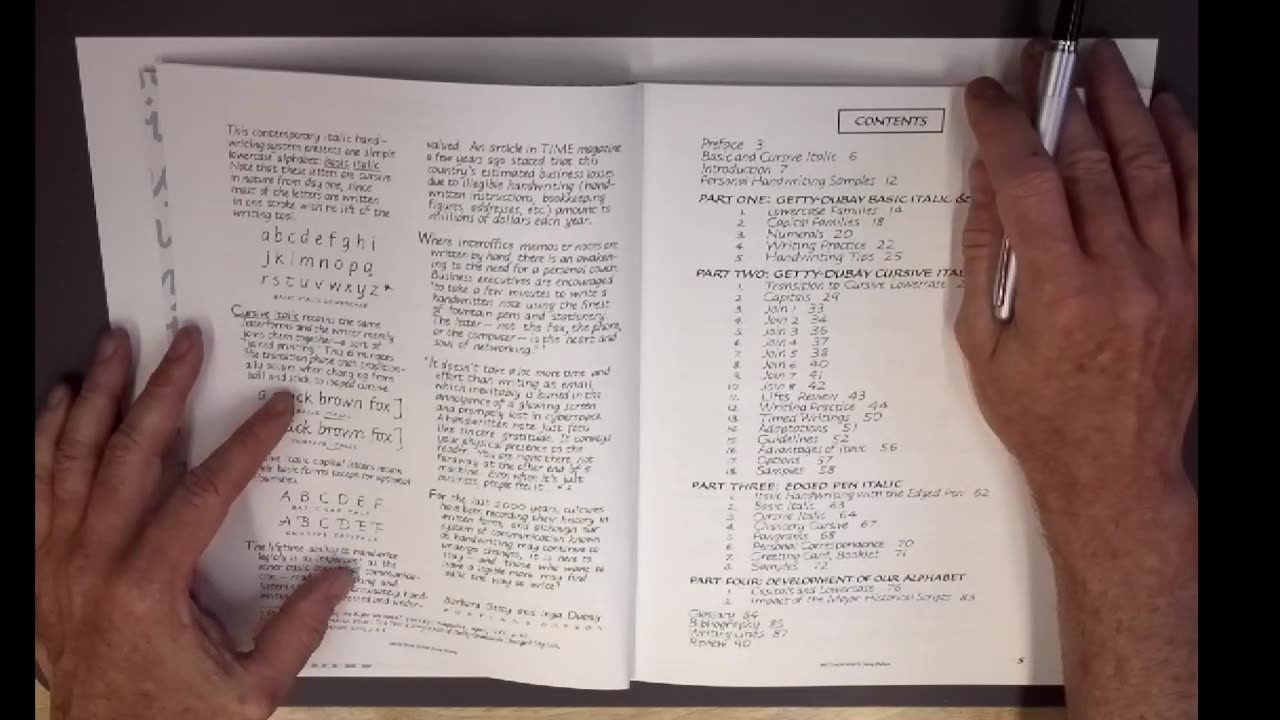 This contemporary italic hand-
writing system presents one simple
lowercase alphabet: Basic Italic
Note that these letters are cursive
in nature from day one, since
most of the letters are written
in one stroke with no lift of the
writing tool.
a b c d e f g h i
j k l m n o p q
r s t u v w x y z
BASIC ITALIC LOWERCASE
Cursive Italic retains the same
letterforms and the writer merely
joins them together – a sort of
"joined printing". This eliminates
the transition phase that tradition-
ally occurs when changing from
ball and stick to looped cursive.
a ck brown fox]
BASIC ITALIC
ack brown fox]
CURSIVE ITALIC
italic capital letters retain
their basic forms except for optional
flourishes.
A B C D E F
BASIC CAPITALS
A B C D E F
CURSIVE CAPITALS
The lifetime ability to handwrite
legibly is as important as the
other basic communica-
tion
valued. An article in TIME magazine
a few years ago stated that this
country's estimated business losses
due to illegible handwriting (hand-
written instructions, bookkeeping
figures, addresses, etc) amount to
millions of dollars each year.
Where interoffice memos or notes are
written by hand, there is an awaken-
ing to the need for a personal touch.
Business executives are encouraged
"to take a few minutes to write a
handwritten note using the finest
of fountain pens and stationery.
The letter – not the fax, the phone,
or the computer – is the heart and
soul of networking."
"It doesn't take a lot more time and
effort than writing an email,
which inevitably is buried in the
annoyance of a glowing screen
and promptly lost in cyberspace.
A handwritten note just feels
like sincere gratitude. It conveys
your physical presence to the
reader. You are right there, not
faraway at the other end of a
machine. Even when it's just
business, people feel it."
For the last 5,000 years, cultures
have been recording their history in
written form, and although our
system of communication known
as handwriting may continue to
undergo changes, it is here to
stay – and those who want to
leave a legible mark may find
italic the way to write!
Barbara Getty and Inga Dubay
PORTLAND, OREGON
CONTENTS
Preface 3
Basic and Cursive Italic 6
Introduction 7
Personal Handwriting Samples 12
PART ONE: GETTY-DUBAY BASIC ITALIC &
1. Lowercase Families 14
2. Capital Families 18
3. Numerals 20
4. Writing Practice 22
5. Handwriting Tips 25
PART TWO: GETTY-DUBAY CURSIVE ITAL
1. Transition to Cursive Lowercase 2
2. Capitals 29
3. Join 1 33
4. Join 2 34
5. Join 3 36
6. Join 4 37
7. Join 5 38
8. Join 6 40
9. Join 7 41
10. Join 8 42
11. Lifts, Review 43
12. Writing Practice 44
13. Timed Writings 50
14. Adaptations 51
15. Guidelines 52
16. Advantages of Italic 56
17. Options 57
18. Samples 58
PART THREE: EDGED PEN ITALIC
1. Italic Handwriting with the Edged Pen 62
2. Basic Italic 63
3. Cursive Italic 64
4. Chancery Cursive 67
5. Pangrams 68
6. Personal Correspondence 70
7. Greeting Card, Booklet 71
8. Samples 72
PART FOUR: DEVELOPMENT OF OUR ALPHABET
1. Capitals and Lowercase 76
2. Impact of the Major Historical Scripts 83
Glossary 84
Bibliography 85
Writing Links 87
Review 90
5